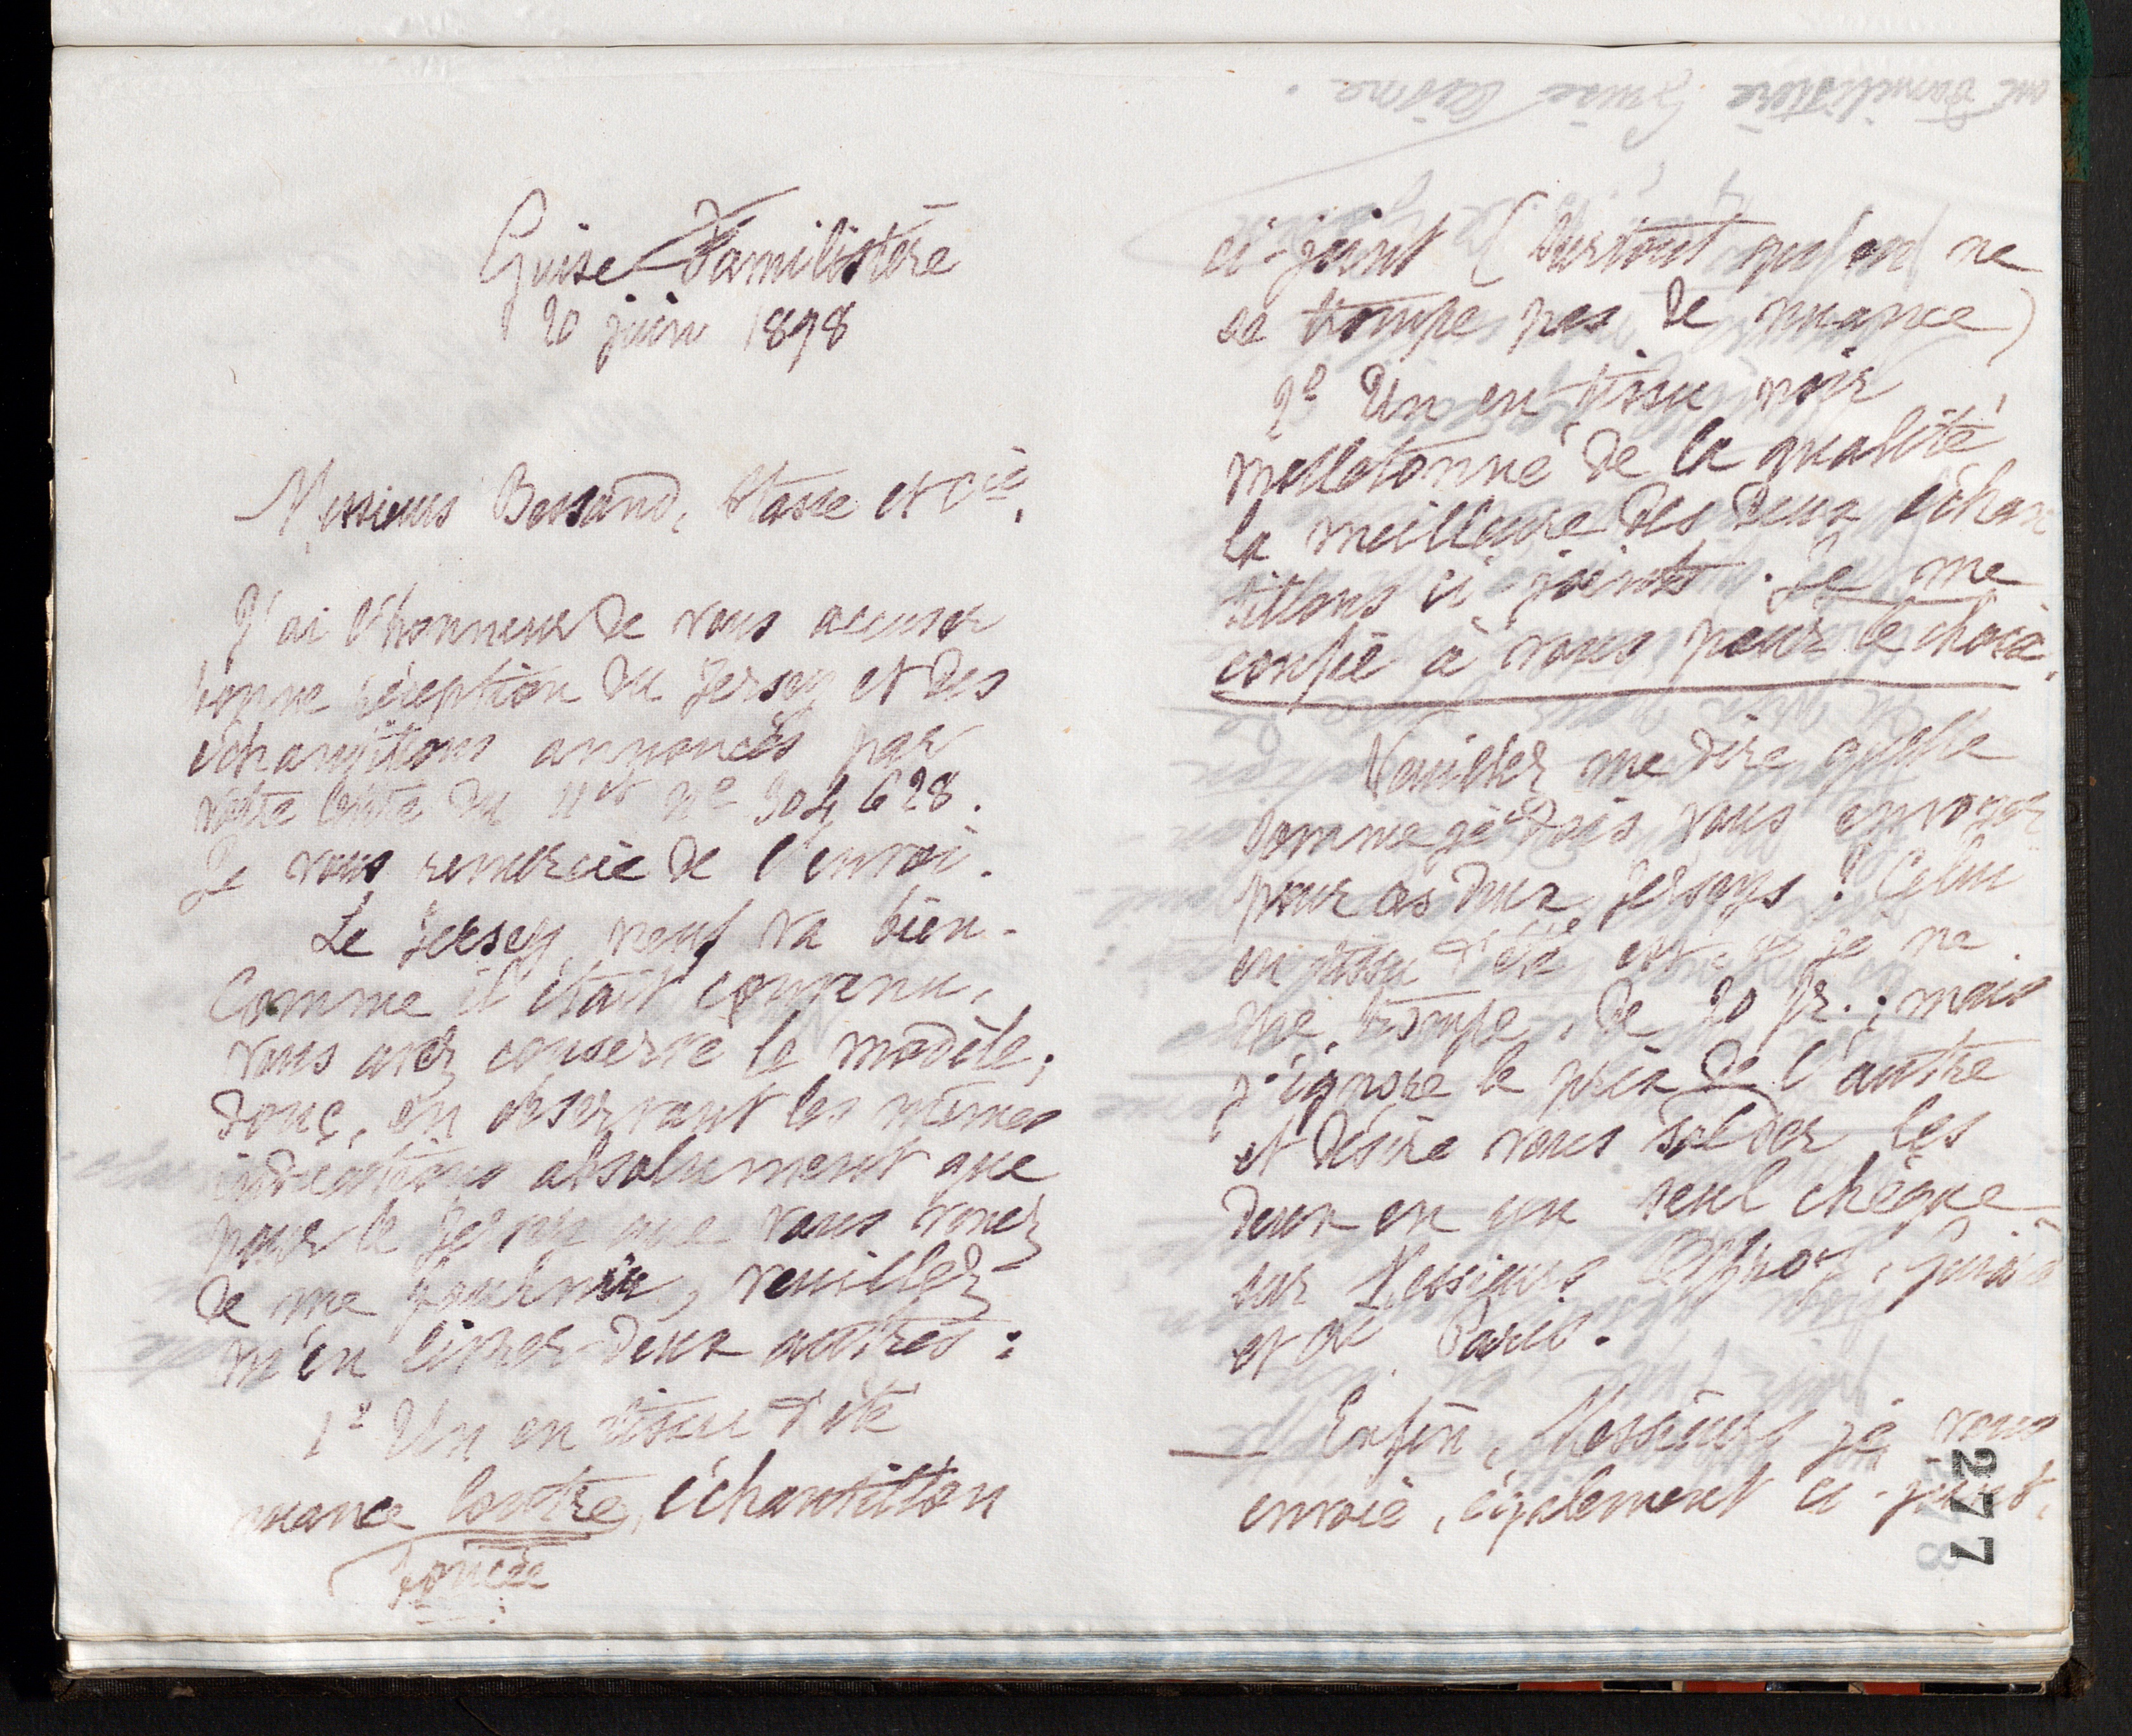 Guise Familistère
20 juin 1898
Messieurs Bessand, Stasse et Cie,
J'ai l'honneur de vous accuser
bonne réception du Jersey et des
échantillons annoncés par
votre lettre du 11 ct nº 304628.
Je vous remercie de l'envoi.
Le Jersey neuf va bien.
Comme il était convenu,
vous avez conservé le modèle,
donc, en observant les mêmes
indications absolument que
pour le Jersey que vous venez
de me fournir, veuillez
m'en livrer deux autres :
1º Un en tissu d'été
nuance loutre, échantillon
foncée
ci-joint (surtout qu'on ne
se trompe pas de nuance)
2º Un en tissu noir
molletonné de la qualité
la meilleure des deux échan
tillons ci-joints. Je me
confie à vous pour le choix.
Veuillez me dire quelle
somme je dois vous envoyer
pour ces deux Jerseys ? Celui
en tissu d'été est, si je ne
me trompe, de 20 fr. ; mais
j'ignore le prix de l'autre
et désire vous solder les
deux en un seul chèque
sur Messieurs
et Cie Paris.
Enfin, Messieurs, je vous
envoie, également ci-joint,
277